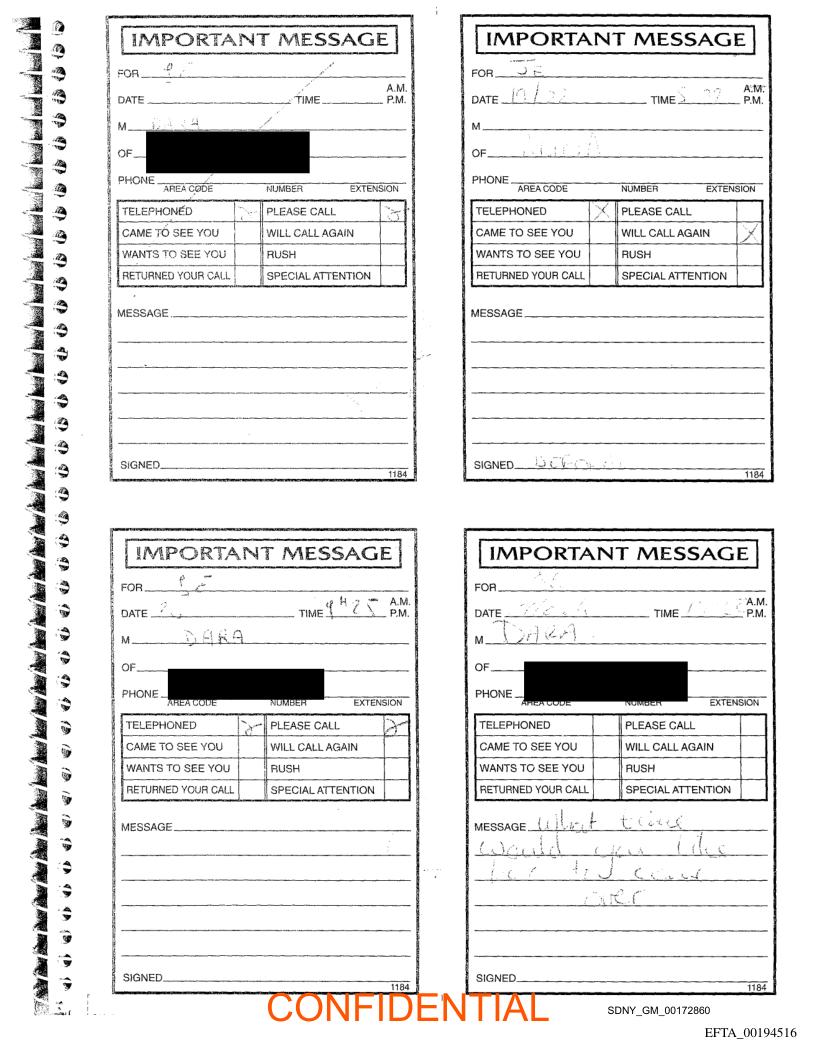 IMPORTANT MESSAGE
FOR
A.M.
DATE TIME P.M.
M DARA
OF
PHONE
AREA CODE NUMBER EXTENSION
TELEPHONED PLEASE CALL
CAME TO SEE YOU WILL CALL AGAIN
WANTS TO SEE YOU RUSH
RETURNED YOUR CALL SPECIAL ATTENTION
MESSAGE
SIGNED
1184
IMPORTANT MESSAGE
FOR JE
A.M.
DATE TIME P.M.
M
OF
PHONE
AREA CODE NUMBER EXTENSION
TELEPHONED X PLEASE CALL
CAME TO SEE YOU WILL CALL AGAIN X
WANTS TO SEE YOU RUSH
RETURNED YOUR CALL SPECIAL ATTENTION
MESSAGE
SIGNED
1184
IMPORTANT MESSAGE
FOR
A.M.
DATE TIME 9H25 P.M.
M DARA
OF
PHONE
AREA CODE NUMBER EXTENSION
TELEPHONED PLEASE CALL
CAME TO SEE YOU WILL CALL AGAIN
WANTS TO SEE YOU RUSH
RETURNED YOUR CALL SPECIAL ATTENTION
MESSAGE
SIGNED
1184
IMPORTANT MESSAGE
FOR
A.M.
DATE TIME P.M.
M DARA
OF
PHONE
AREA CODE NUMBER EXTENSION
TELEPHONED PLEASE CALL
CAME TO SEE YOU WILL CALL AGAIN
WANTS TO SEE YOU RUSH
RETURNED YOUR CALL SPECIAL ATTENTION
MESSAGE What time
would you like
for come
over
SIGNED
1184
CONFIDENTIAL
SDNY_GM_00172860
EFTA_00194516